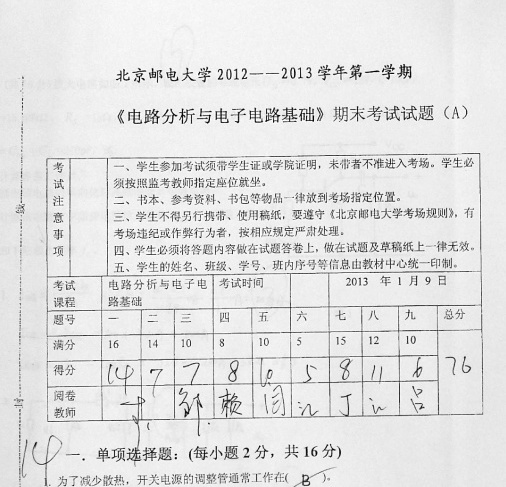 北京邮电大学 2012——2013 学年第一学期
《电路分析与电子电路基础》期末考试试题（A）
考试注意事项
一、学生参加考试须带学生证或学院证明，未带者不准进入考场。学生必
须按照监考教师指定座位就坐。
二、书本、参考资料、书包等物品一律放到考场指定位置。
三、学生不得另行携带、使用稿纸，要遵守《北京邮电大学考场规则》，有
考场违纪或作弊行为者，按相应规定严肃处理。
四、学生必须将答题内容做在试题答卷上，做在试题及草稿纸上一律无效。
五、学生的姓名、班级、学号、班内序号等信息由教材中心统一印制。
考试课程 电路分析与电子电路基础 考试时间 2013 年 1 月 9 日
题号 一 二 三 四 五 六 七 八 九 总分
满分 16 14 10 8 10 5 15 12 10
得分 14 7 7 8 10 5 8 11 6 76
阅卷教师 邹 赖 闫 江 丁 江 吕
14
一. 单项选择题：(每小题 2 分，共 16 分)
1. 为了减少散热，开关电源的调整管通常工作在( B )。